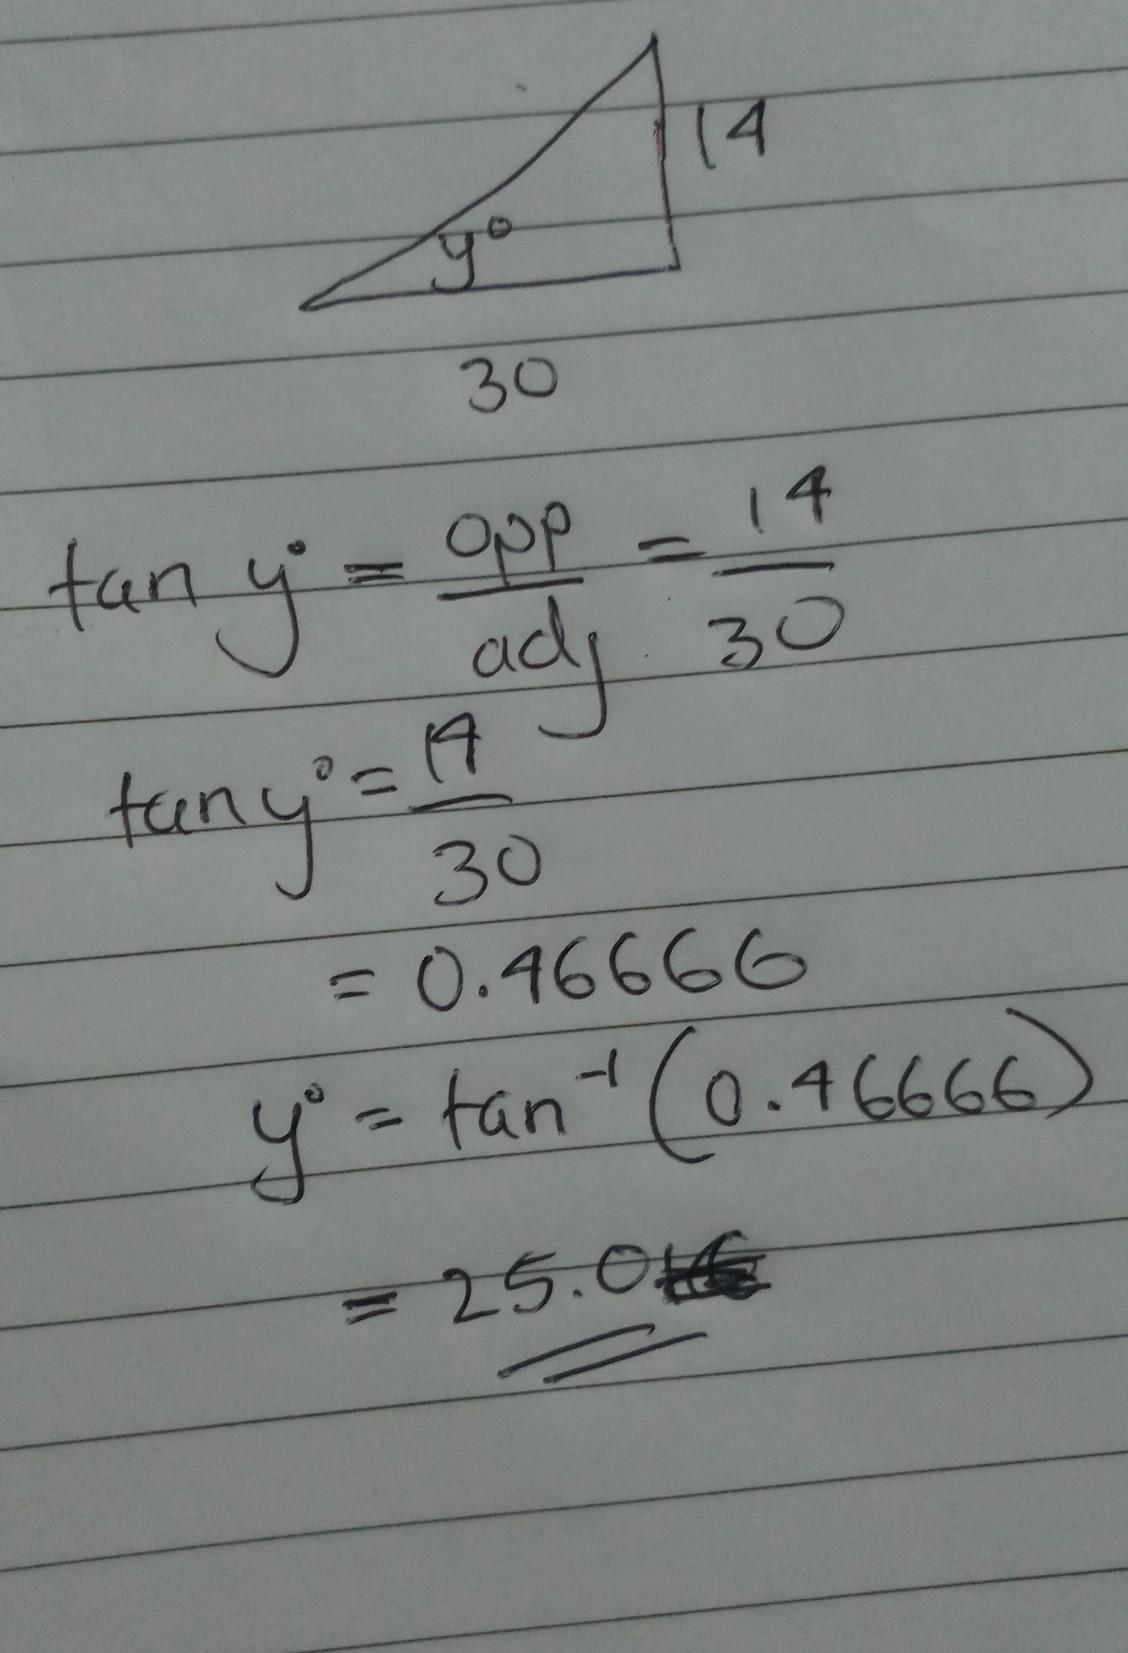 14
y°
30
tan y° = opp/adj = 14/30
tan y° = 14/30
= 0.46666
y° = tan⁻¹(0.46666)
= 25.0